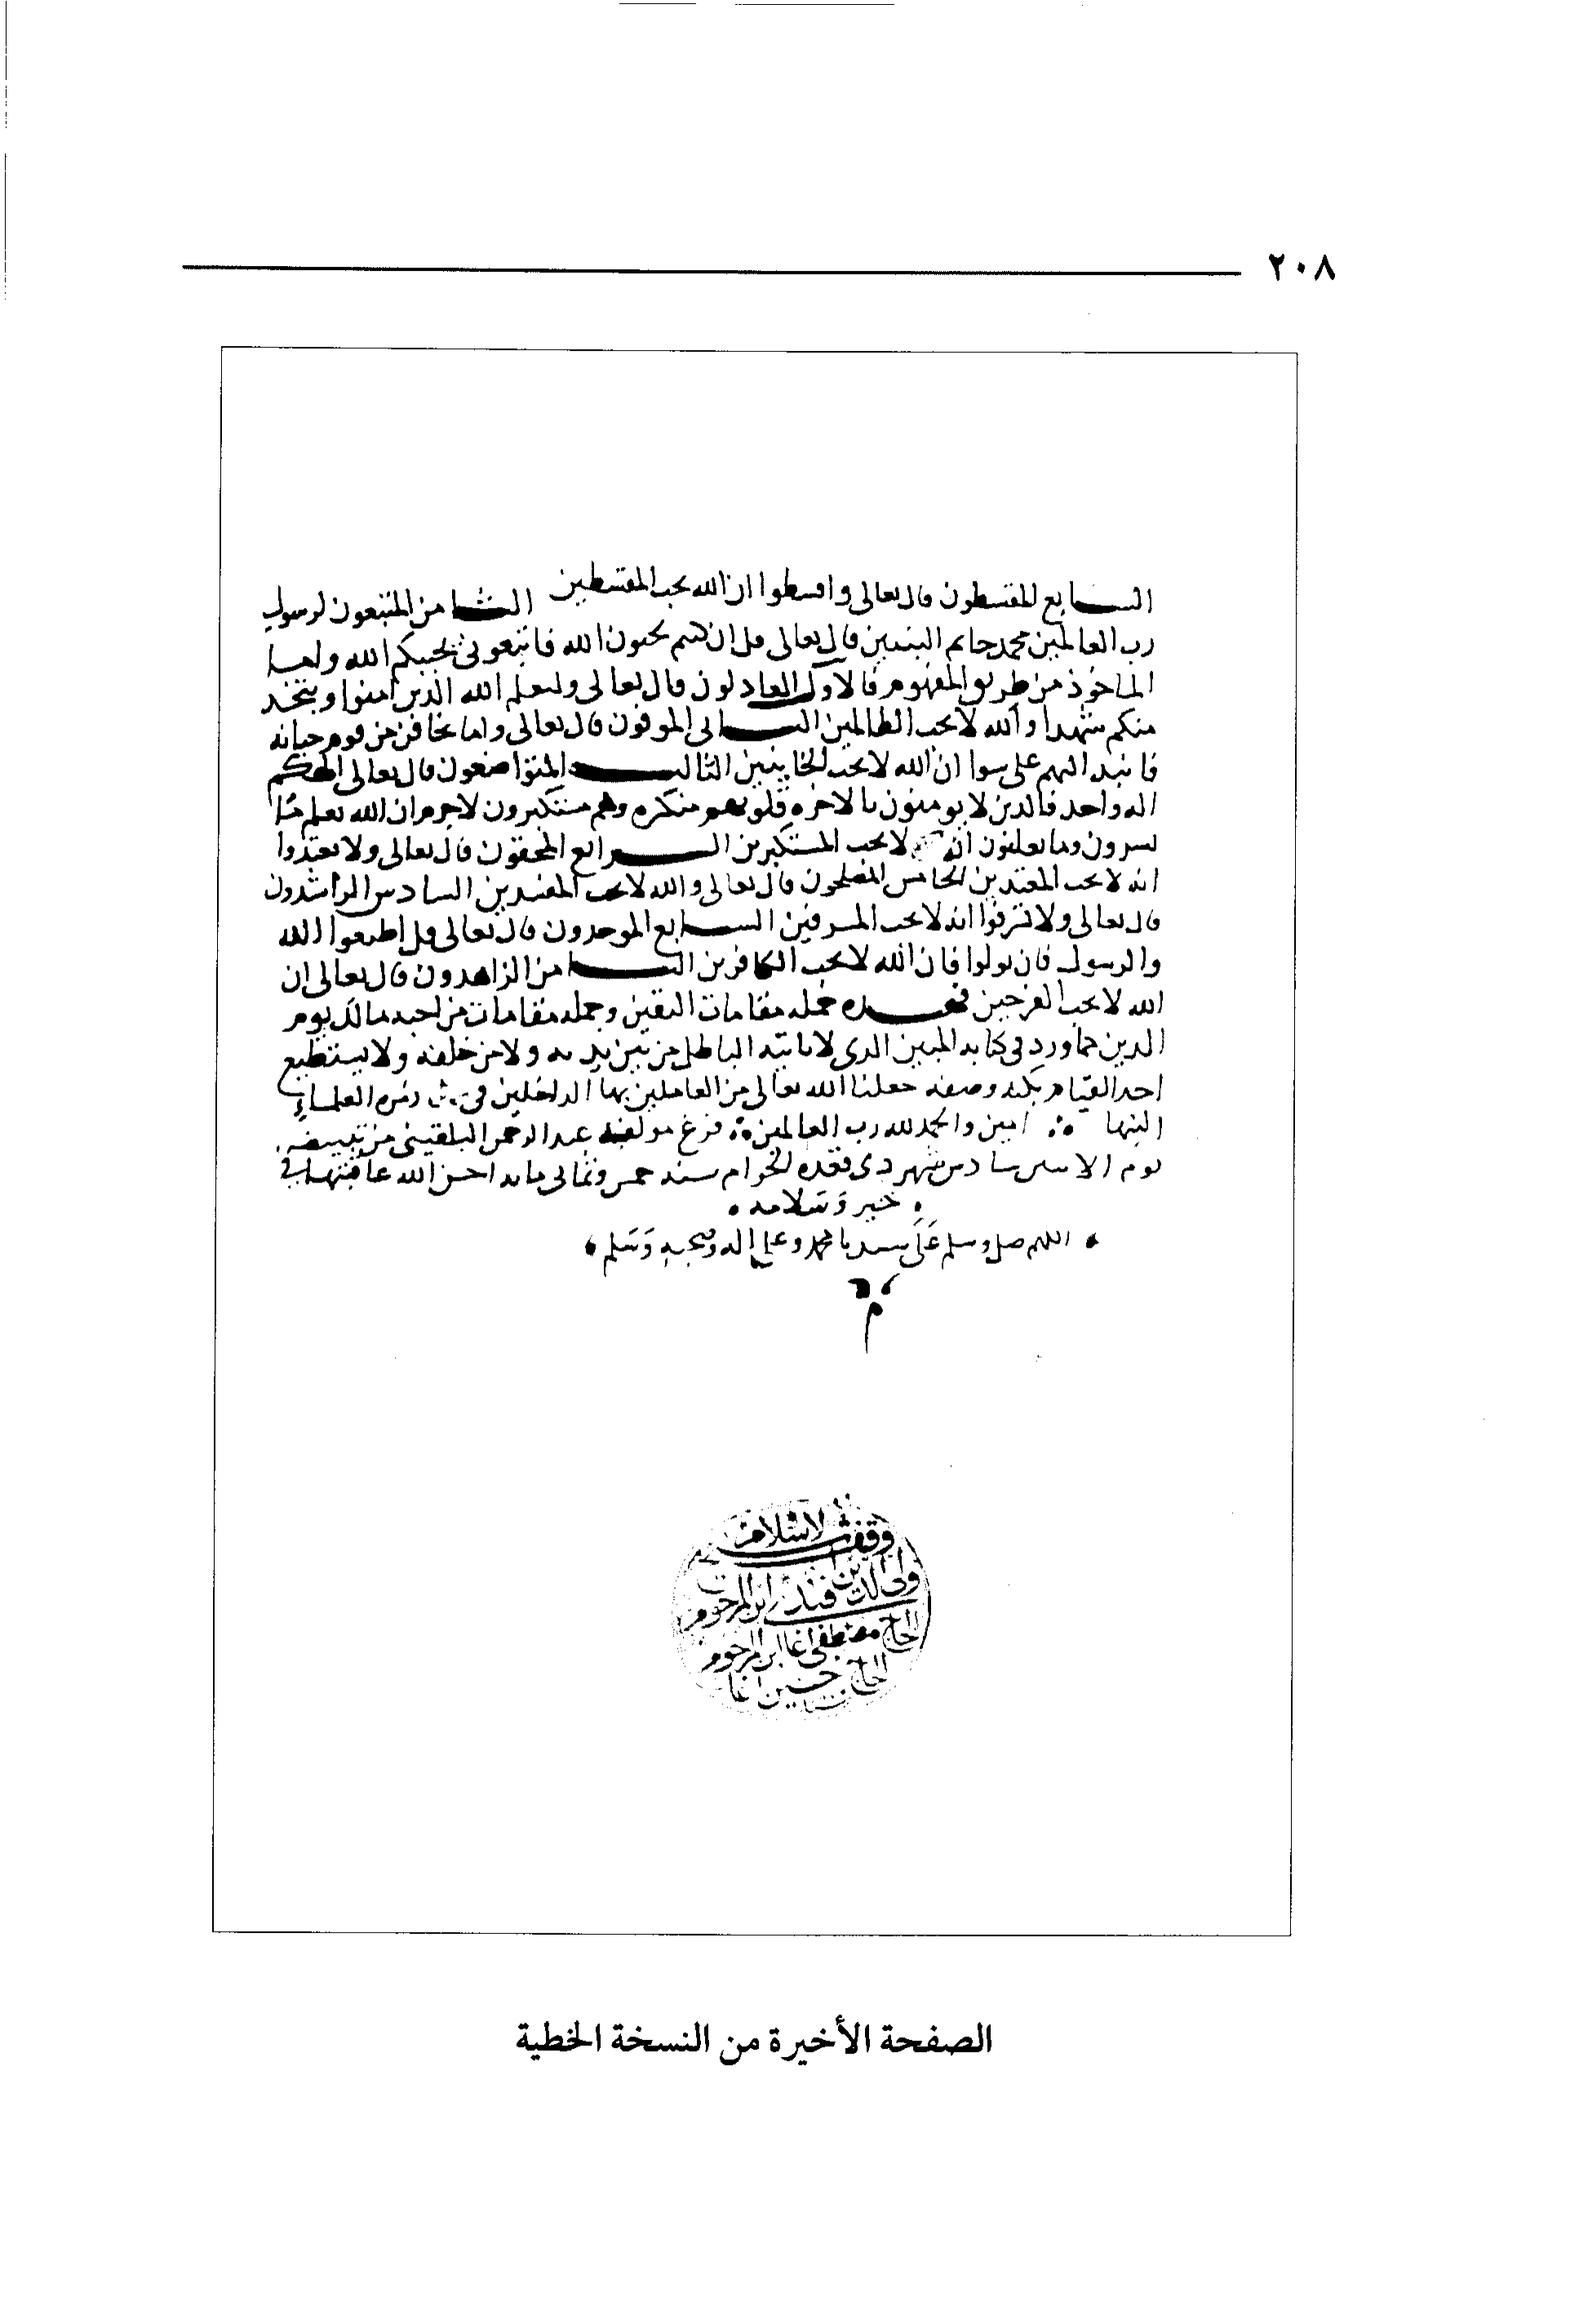 ٢٠٨
السابع المقسطون قال تعالى واقسطوا ان الله يحب المقسطين الثامن المتبعون لرسول
رب العالمين محمد خاتم النبيين قال تعالى قل ان كنتم تحبون الله فاتبعوني يحببكم الله واما
الماخوذ من طريق المفهوم فالاول العادلون قال تعالى وليعلم الله الذين امنوا ويتخذ
منكم شهدا والله لا يحب الظالمين الثاني الموفون قال تعالى واما تخافن من قوم خيانة
فانبذ اليهم على سوا ان الله لا يحب الخاينين الثالث المتواضعون قال تعالى الهكم
اله واحد فالذين لا يومنون بالاخرة قلوبهم منكره وهم مستكبرون لا جرم ان الله يعلم ما
يسرون وما يعلنون انه لا يحب المستكبرين الرابع المحقون قال تعالى ولا تعتدوا
انه لا يحب المعتدين الخامس المصلحون قال تعالى والله لا يحب المفسدين السادس الراشدون
قال تعالى ولا تسرفوا انه لا يحب المسرفين السابع الموحدون قال تعالى قل اطيعوا الله
والرسول فان تولوا فان الله لا يحب الكافرين الثامن الزاهدون قال تعالى ان
الله لا يحب الفرحين فهذه جملة مقامات اليقين وجملة مقامات من احبه مالك يوم
الدين مما ورد في كتابه المبين الذي لا ياتيه الباطل من بين يديه ولا من خلفه ولا يستطيع
احد القيام بكنه وصفه جعلنا الله تعالى من العاملين بها الداخلين في زمرة العلماء
النبها امين والحمد لله رب العالمين فرغ مولفه عبد الرحمن البلقيني من تبييضه
يوم الاثنين سادس شهر ذي قعدة الحرام سنة خمس وثماني ماية احسن الله عاقبتها في
خير وسلامه
اللهم صل وسلم على سيدنا محمد وعلى اله وصحبه وسلم
م
وقف شيخ الاسلام
ولي الدين افندي ابن المرحوم
الحاج مصطفى اغا ابن المرحوم
الحاج حسين اغا
الصفحة الأخيرة من النسخة الخطية